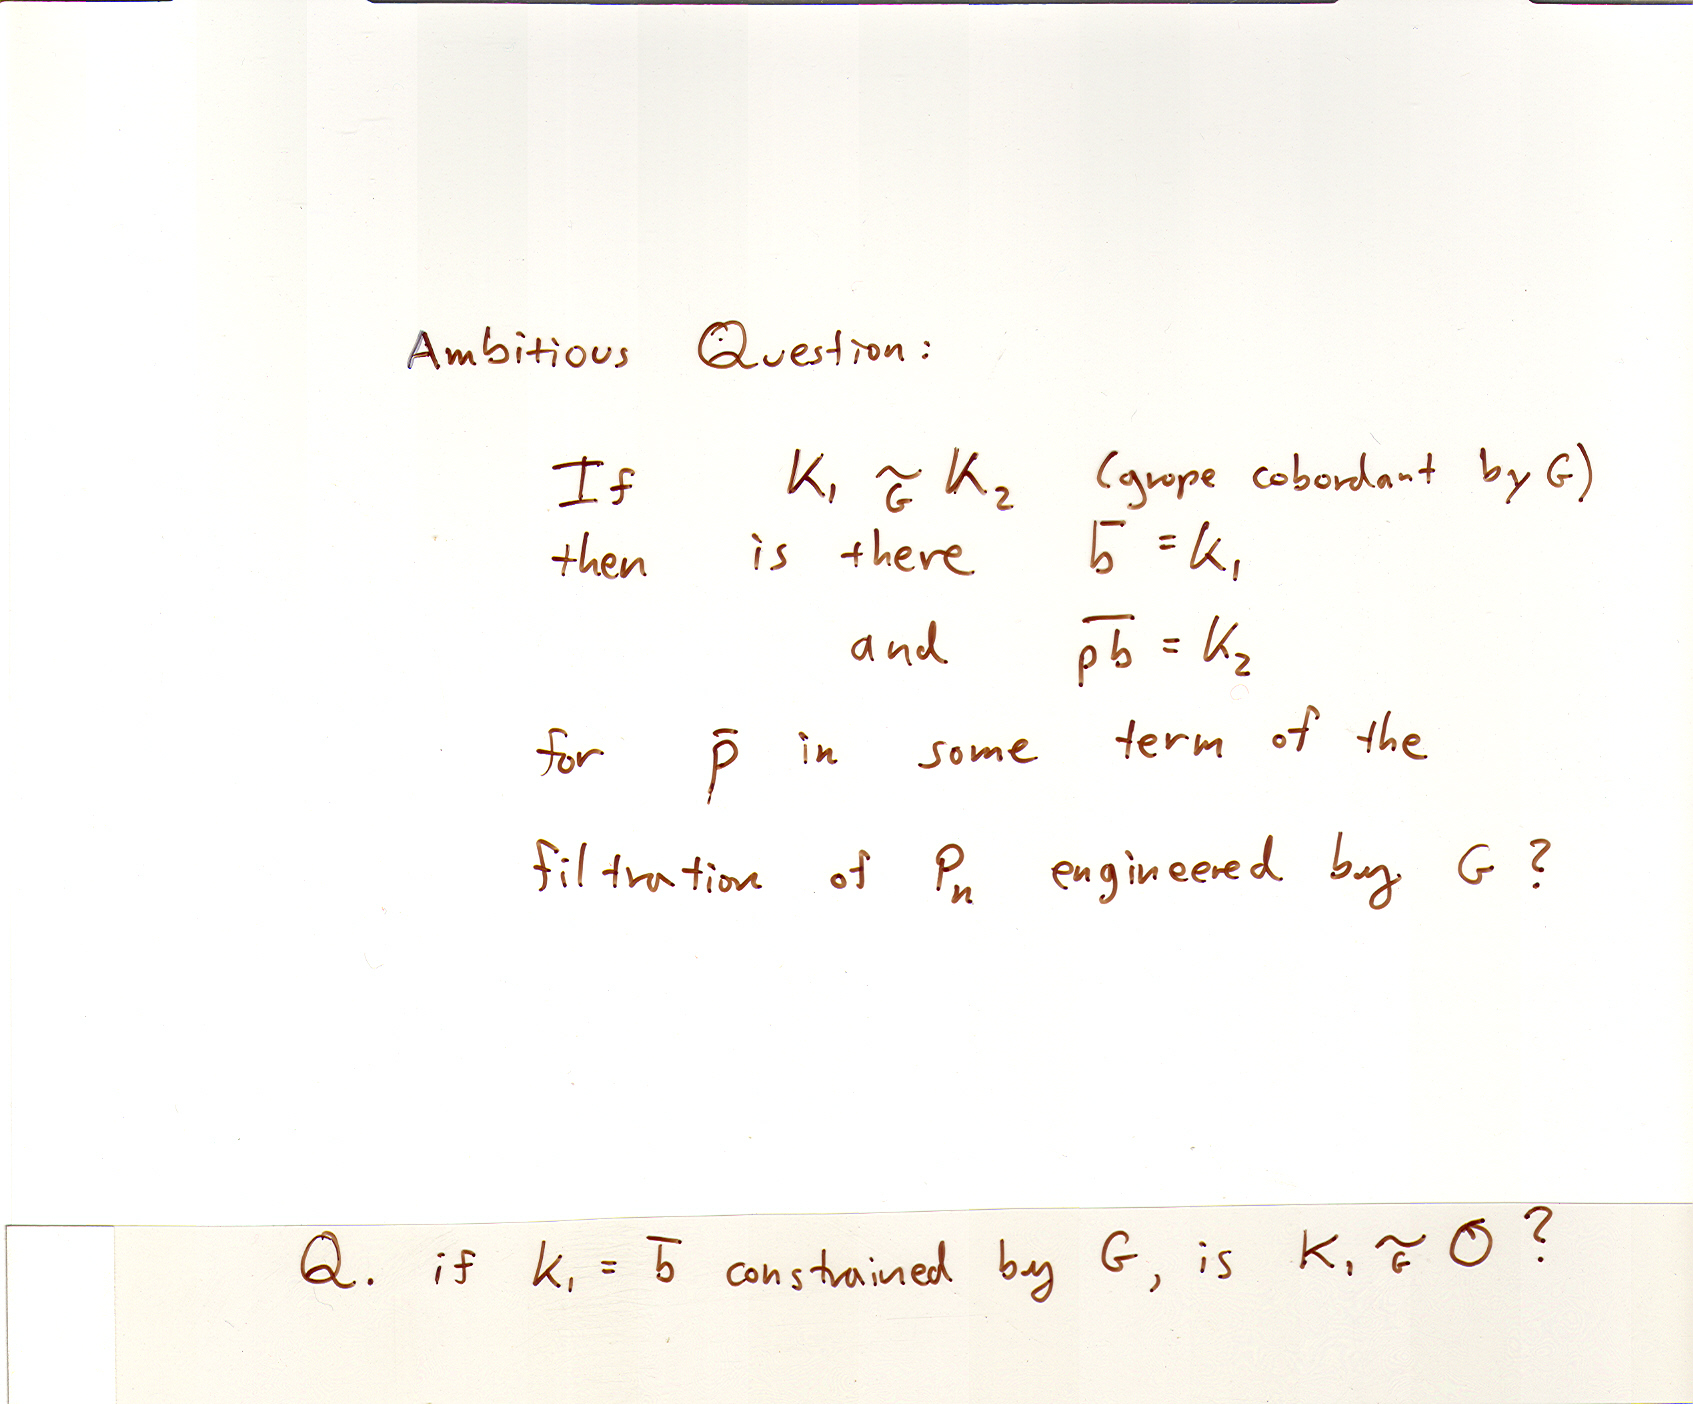 Ambitious Question:
If K₁ ≃_G K₂ (grope cobordant by G)
then is there b̅ = K₁
and p̅b̅ = K₂
for p̅ in some term of the
filtration of Pₙ engineered by G ?
Q. if K₁ = b̅ constrained by G, is K₁ ≃_G O ?